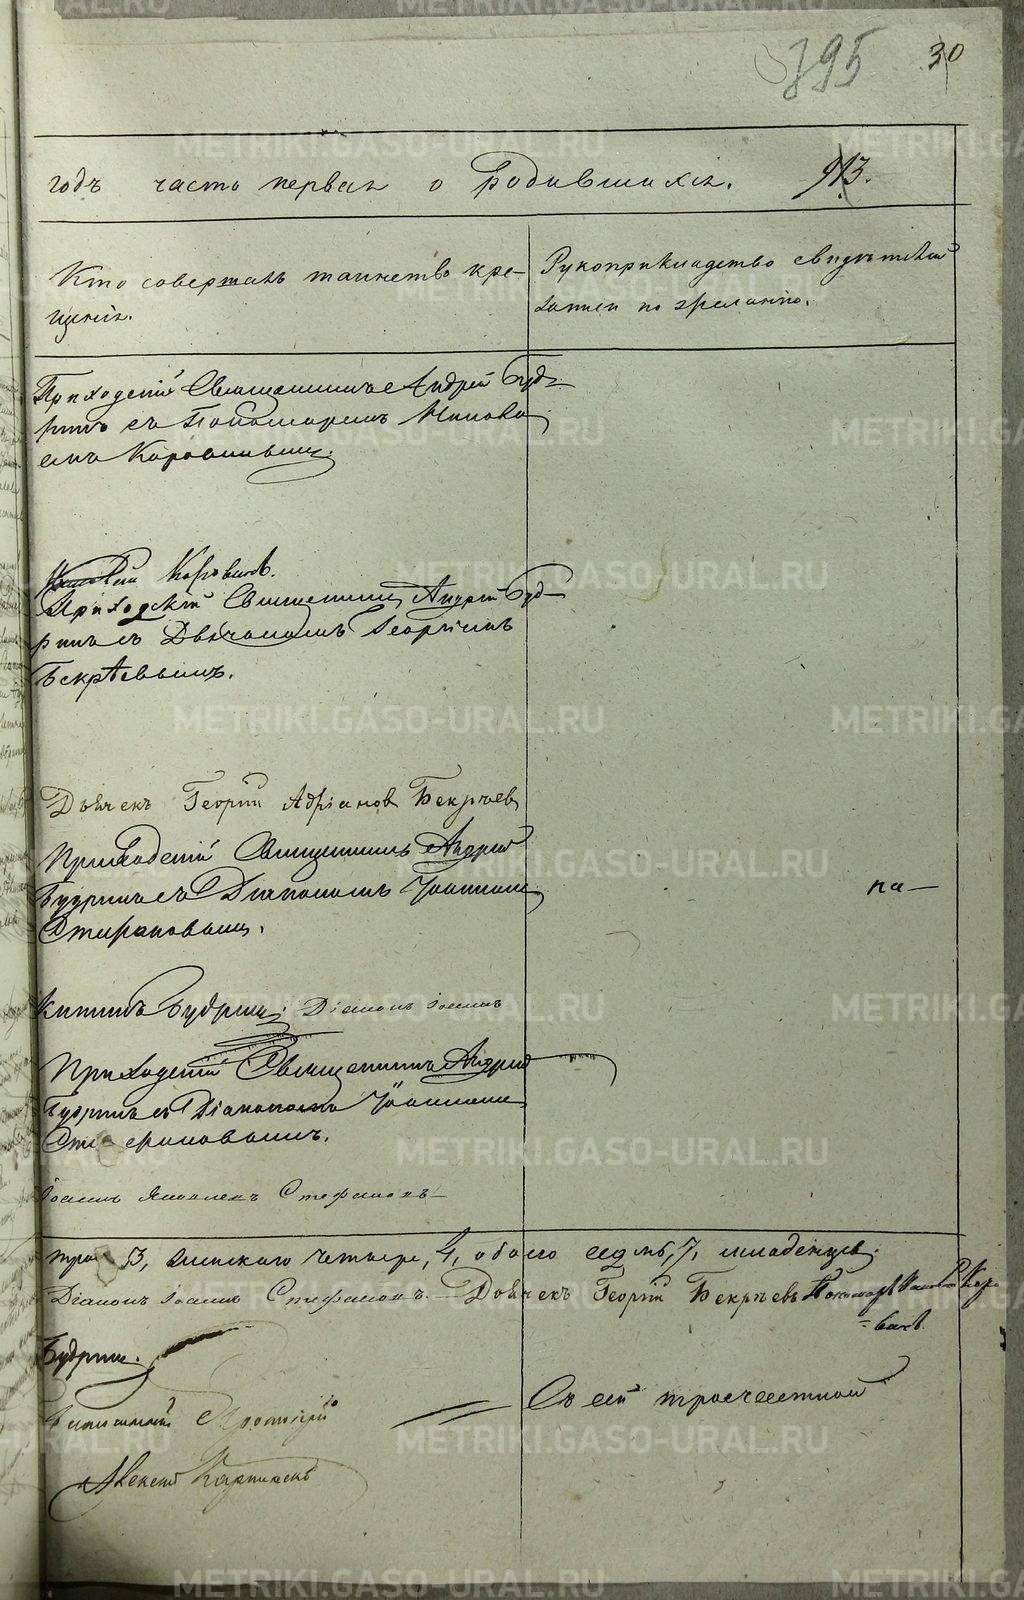 395 30
годъ часть первая о Родившихся. 913.
Кто совершалъ таинство кре-
щенія.
Рукоприкладство свидѣтелей
записи по желанію.
Приходскій Священникъ Андрей Буд-
ринъ съ Пономаремъ
Коровинымъ.
Коровинъ.
Приходскій Священникъ Андрей Буд-
ринъ съ Дьячкомъ Георгіемъ
Бекрѣевымъ.
Дьячекъ Георгій Адріановъ Бекрѣевъ
Приходскій Священникъ Андрей
Будринъ съ Діакономъ Іоанномъ
Стефановымъ.
на—
Будринъ. Діаконъ Іоаннъ
Приходскій Священникъ Андрей
Будринъ съ Діакономъ Іоанномъ
Стефановымъ.
Іоаннъ Стефановъ
три 3, женскаго четыре, 4, обоего седмь, 7, младенцевъ.
Діаконъ Іоаннъ Стефановъ. Дьячекъ Георгій Бекрѣевъ Пономарь Коро-
=винъ.
Будринъ.
Съ сей
Алексій
METRIKI.GASO-URAL.RU